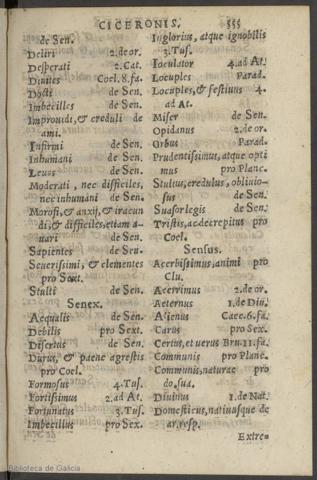 CICERONIS. 555
de Sen.
Deliri 2.de or.
Desperati 2. Cat.
Diuites Coel. 8. fa.
Docti de Sen.
Imbecilles de Sen.
Improuidi, & creduli de
ami.
Infirmi de Sen.
Inhumani de Sen.
Leues de Sen.
Moderati, nec difficiles,
nec inhumani de Sen.
Morosi, & anxij, & iracun
di, & difficiles, etiam a-
uari de Sen.
Sapientes de Sen.
Seuerissimi, & clementes
pro Sext.
Stulti de Sen.
Senex.
Aequalis de Sen.
Debilis pro Sext.
Disertus de Sen.
Durus, & paene agrestis
pro Coel.
Formosus 4. Tus.
Fortissimus 2. ad At.
Fortunatus 3. Tus.
Imbecillus pro Sex.
Inglorius, atque ignobilis
3. Tus.
Ioculator 4. ad At.
Locuples Parad.
Locuples, & festiuus 4.
ad At.
Miser de Sen.
Opidanus 2. de or.
Orbus Parad.
Prudentissimus, atque opti
mus pro Planc.
Stultus, credulus, obliuio-
sus de Sen.
Suasor legis de Sen.
Tristis, ac decrepitus pro
Coel.
Sensus.
Acerbissimus, animi pro
Clu.
Acerrimus 2. de or.
Aeternus 1. de Diu.
Alienus Caec. 6. fa.
Carus pro Sex.
Certus, et uerus Bru. 11. fa.
Communis pro Planc.
Communis, naturae pro
do. sua.
Diuinus 1. de Nat.
Domesticus, natiuusque de
ar. resp.
Extre=
Biblioteca de Galicia